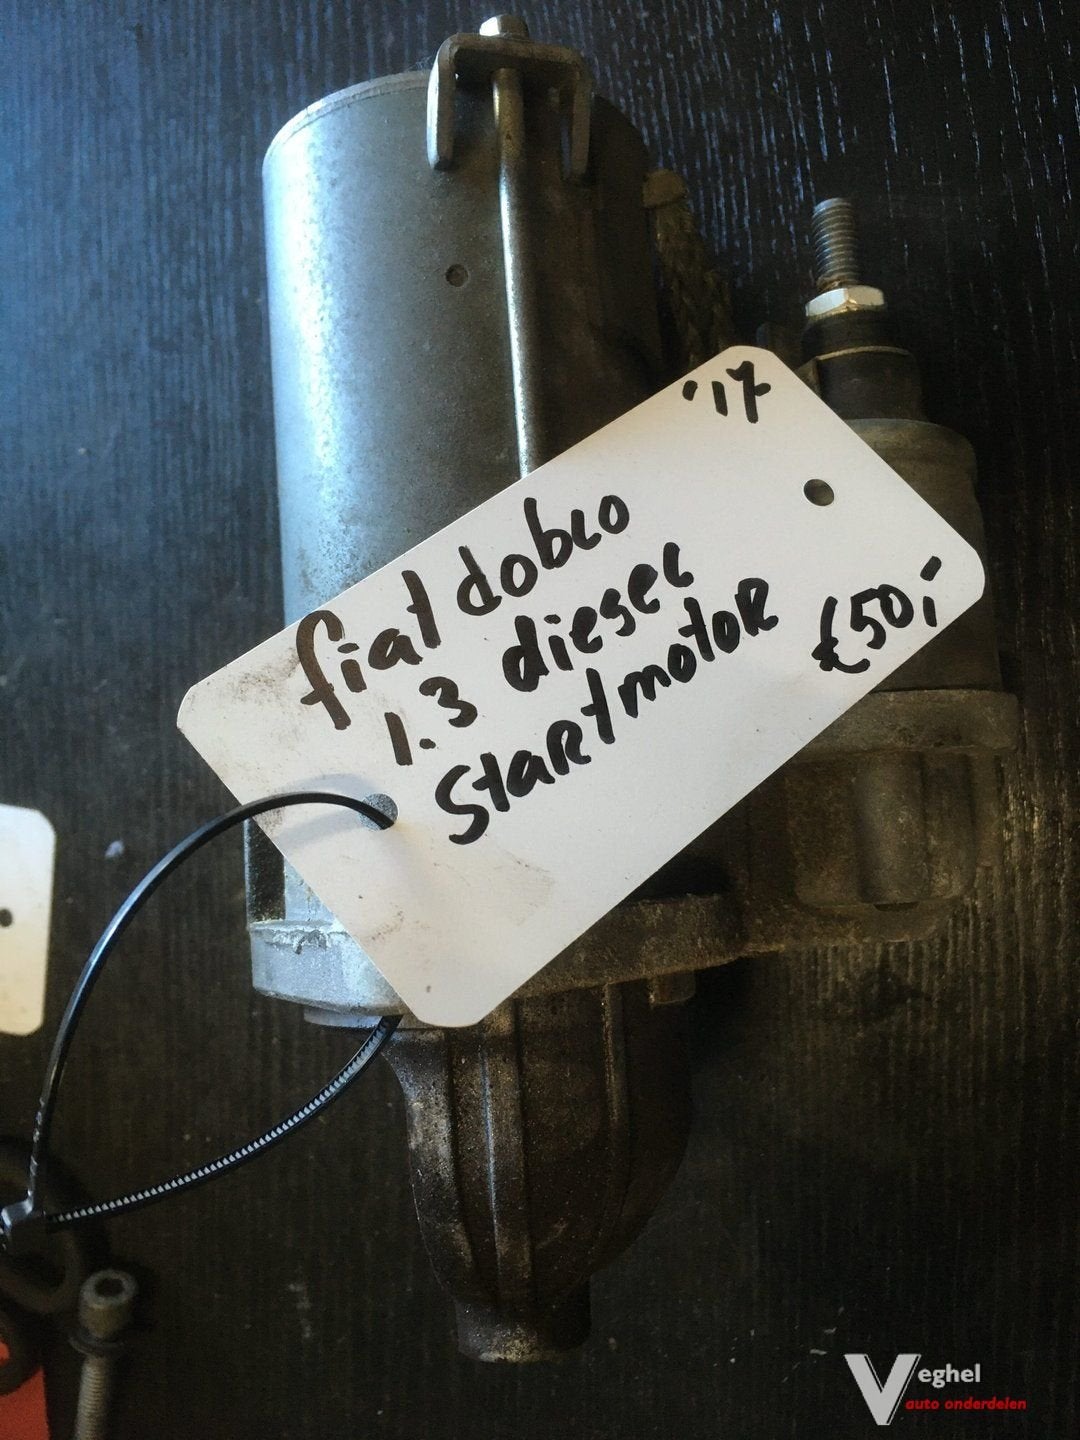 '17
fiat doblo
1.3 diesel
startmotor
€50,-
Veghel
auto onderdelen